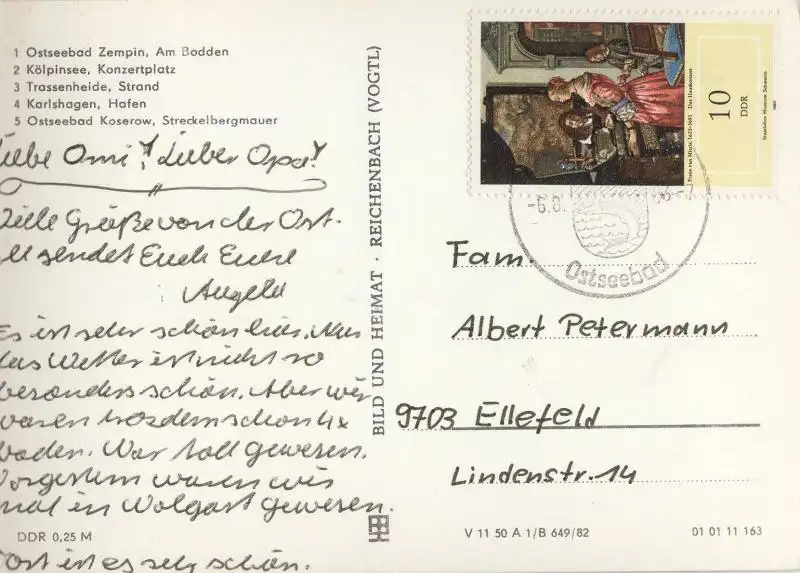 1 Ostseebad Zempin, Am Bodden
2 Kölpinsee, Konzertplatz
3 Trassenheide, Strand
4 Karlshagen, Hafen
5 Ostseebad Koserow, Streckelbergmauer
iebe Omi! Lieber Opa!
Viele Grüße von der Ost-
sendet Euch Eure
Angela
Es ist sehr schön hier. Nur
das Wetter ist nicht so
besonders schön. Aber wir
waren trozdem schon 4x
baden. War toll gewesen.
Vorgestern waren wir
mal in Wolgast gewesen.
Dort ist es sehr schön.
DDR 0,25 M
BILD UND HEIMAT · REICHENBACH (VOGTL)
Frans van Mieris 1635-1681 Das Hauskonzert
10
DDR
Staatliches Museum Schwerin
-6.8.
Ostseebad
Fam.
Albert Petermann
9703 Ellefeld
Lindenstr. 14
V 11 50 A 1/B 649/82
01 01 11 163